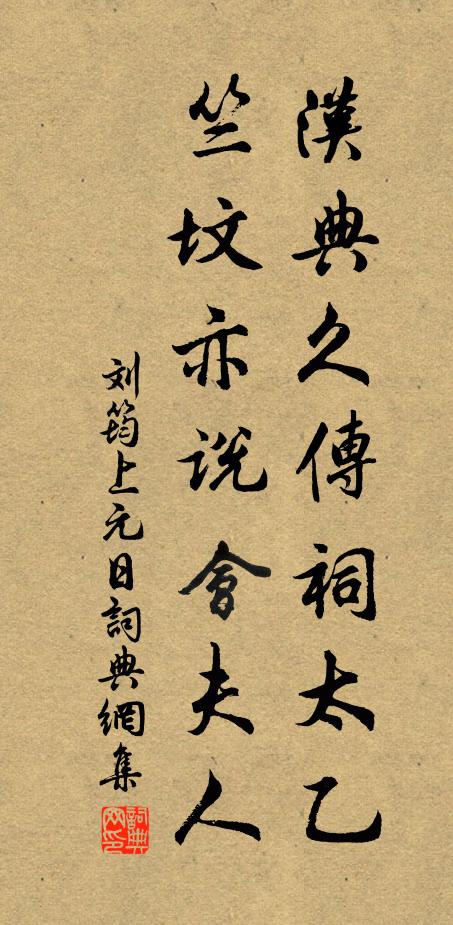 漢典久傳祠太乙
竺坟亦説會夫人
刘筠上元日詞典網集
詞典網印